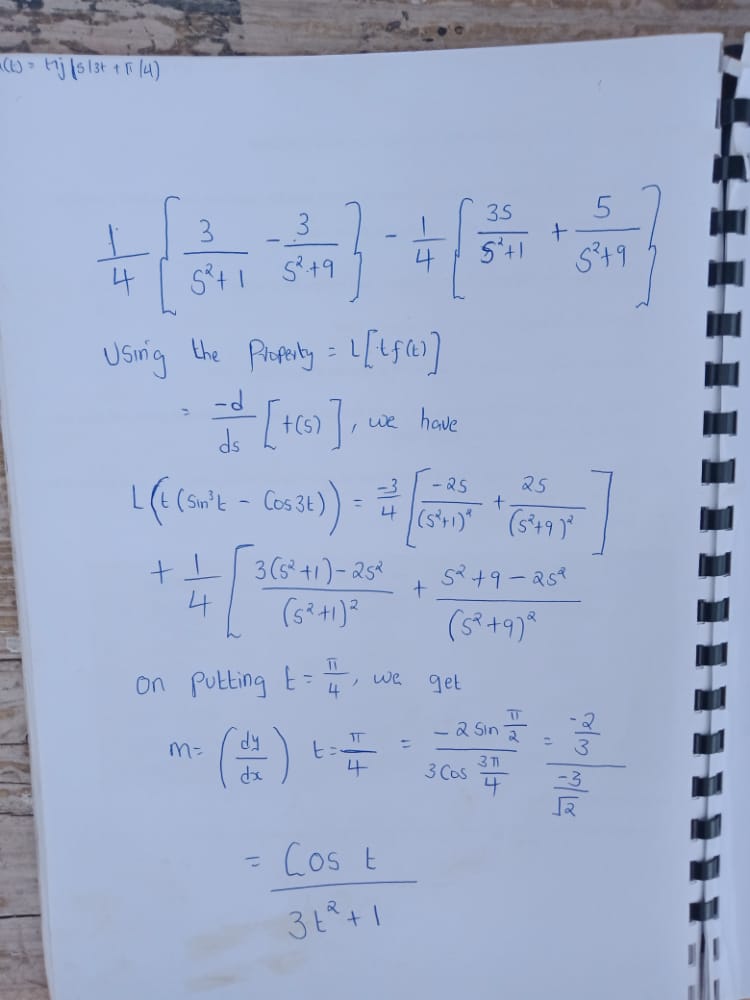 (t) = tij (5/3t + π/4)
1/4 [3/(s²+1) - 3/(s²+9)] - 1/4 [3s/(s²+1) + 5/(s²+9)]
Using the Property = L[tf(t)]
= -d/ds [f(s)], we have
L(t(sin³t - Cos3t)) = -3/4 [-2s/(s²+1)² + 2s/(s²+9)²]
+ 1/4 [3(s²+1)-2s²/(s²+1)² + s²+9-2s²/(s²+9)²
on putting t = π/4, we get
m = (dy/dx) t = π/4 = -2 sin π/2 / 3 Cos 3π/4 = -2/3 / -3/√2
= Cos t / 3t²+1